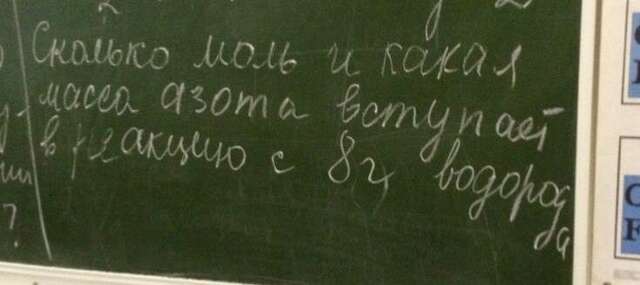 Сколько моль и какая
масса азота вступает
в реакцию с 8г водорода
?